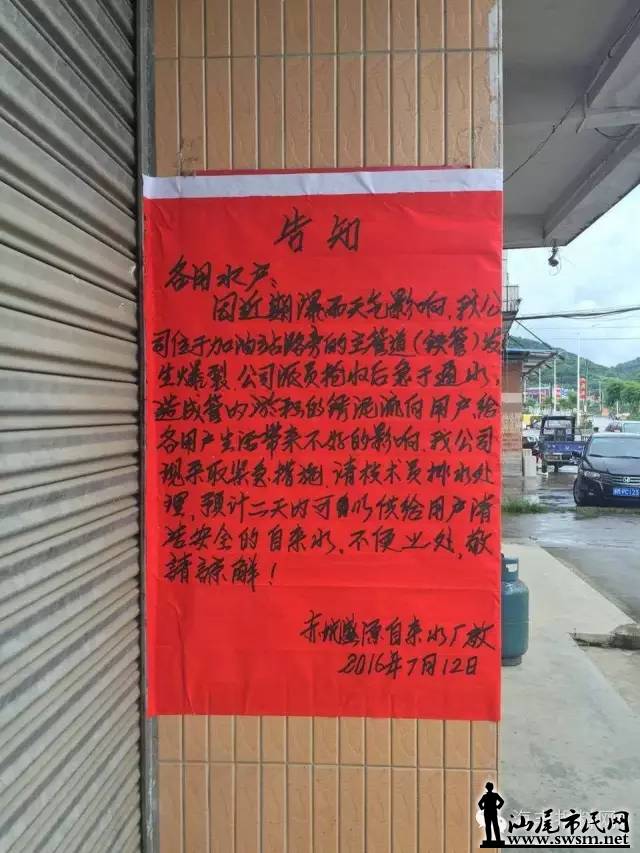 告知
各用水户：
因近期瀑雨天气影响，我公
司位于加油站路旁的主管道(铁管)发
生爆裂，公司派员抢收后急于通水，
造成管内淤积的锈泥流向用户，给
各用户生活带来不好的影响，我公司
现采取紧急措施，请技术员排水处
理，预计二天内可以供给用户清
洁安全的自来水，不便之处，敬
請諒解！
赤坑盛源自来水厂敬
2016年7月12日
汕尾市民网
www.swsm.net